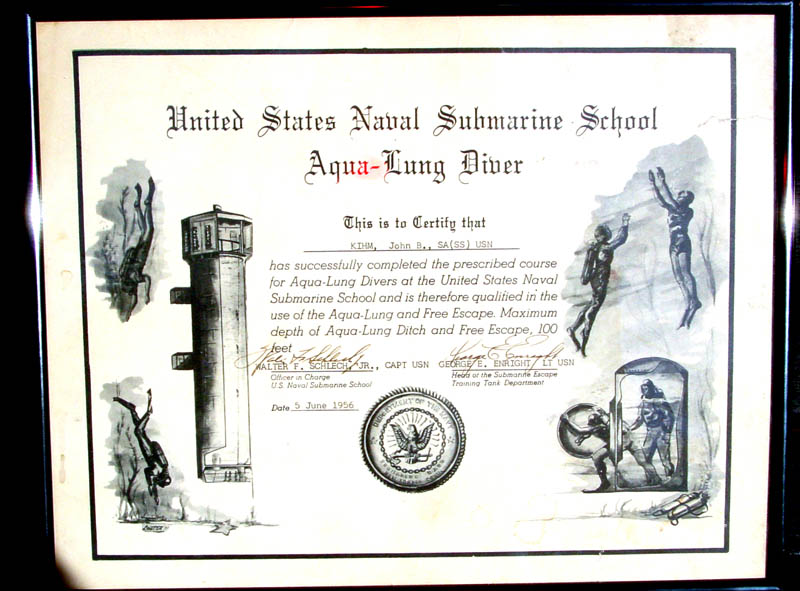 United States Naval Submarine School
Aqua-Lung Diver
This is to Certify that
KIHM, John B., SA(SS) USN
has successfully completed the prescribed course
for Aqua-Lung Divers at the United States Naval
Submarine School and is therefore qualified in the
use of the Aqua-Lung and Free Escape. Maximum
depth of Aqua-Lung Ditch and Free Escape, 100
feet
WALTER F. SCHLECH, JR., CAPT USN GEORGE E. ENRIGHT, LT USN
Officer in Charge Head of the Submarine Escape
U.S. Naval Submarine School Training Tank Department
Date 5 June 1956
DEPARTMENT OF THE NAVY